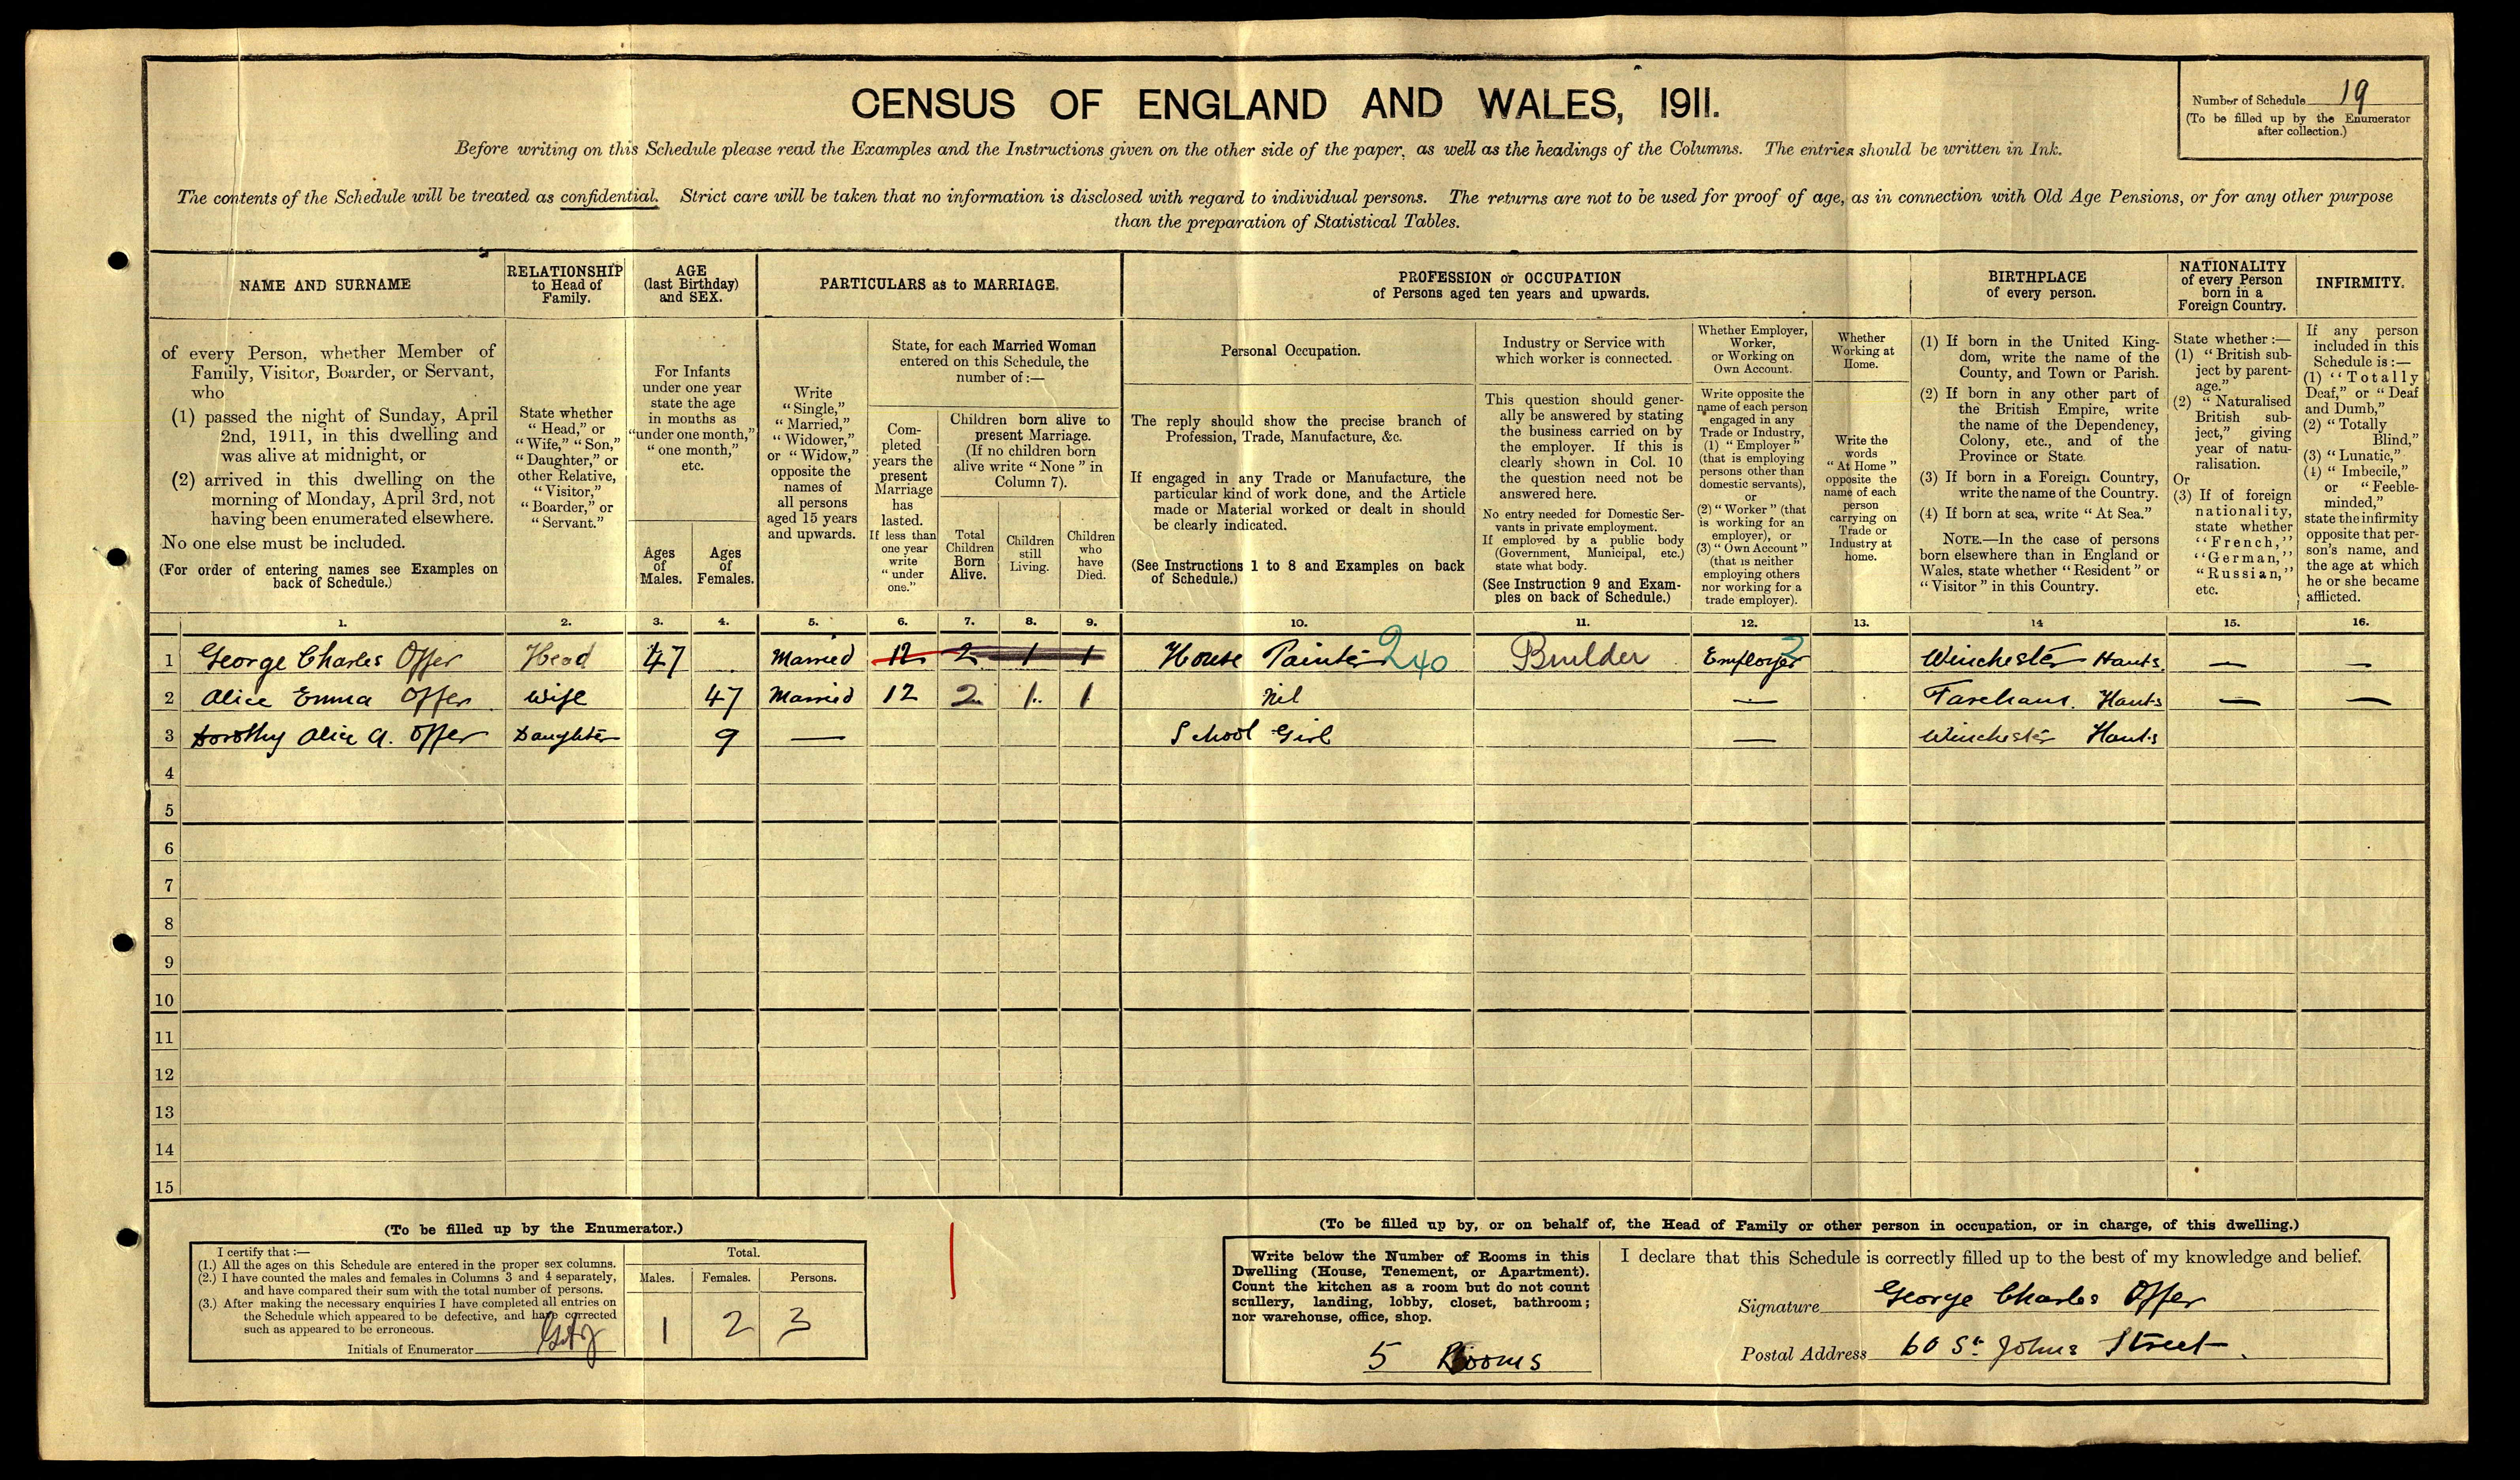 CENSUS OF ENGLAND AND WALES, 1911.
Number of Schedule 19
(To be filled up by the Enumerator
after collection.)
Before writing on this Schedule please read the Examples and the Instructions given on the other side of the paper, as well as the headings of the Columns. The entries should be written in Ink.
The contents of the Schedule will be treated as confidential. Strict care will be taken that no information is disclosed with regard to individual persons. The returns are not to be used for proof of age, as in connection with Old Age Pensions, or for any other purpose
than the preparation of Statistical Tables.
NAME AND SURNAME
of every Person, whether Member of
Family, Visitor, Boarder, or Servant,
who
(1) passed the night of Sunday, April
2nd, 1911, in this dwelling and
was alive at midnight, or
(2) arrived in this dwelling on the
morning of Monday, April 3rd, not
having been enumerated elsewhere.
No one else must be included.
(For order of entering names see Examples on
back of Schedule.)
RELATIONSHIP
to Head of
Family.
State whether
"Head," or
"Wife," "Son,"
"Daughter," or
other Relative,
"Visitor,"
"Boarder," or
"Servant."
AGE
(last Birthday)
and SEX.
For Infants
under one year
state the age
in months as
"under one month,"
"one month,"
etc.
Ages
of
Males.
Ages
of
Females.
PARTICULARS as to MARRIAGE.
Write
"Single,"
"Married,"
"Widower,"
or "Widow,"
opposite the
names of
all persons
aged 15 years
and upwards.
State, for each Married Woman
entered on this Schedule, the
number of :—
Com-
pleted
years the
present
Marriage
has
lasted.
If less than
one year
write
"under
one."
Children born alive to
present Marriage.
(If no children born
alive write "None" in
Column 7).
Total
Children
Born
Alive.
Children
still
Living.
Children
who
have
Died.
PROFESSION or OCCUPATION
of Persons aged ten years and upwards.
Personal Occupation.
The reply should show the precise branch of
Profession, Trade, Manufacture, &c.
If engaged in any Trade or Manufacture, the
particular kind of work done, and the Article
made or Material worked or dealt in should
be clearly indicated.
(See Instructions 1 to 8 and Examples on back
of Schedule.)
Industry or Service with
which worker is connected.
This question should gener-
ally be answered by stating
the business carried on by
the employer. If this is
clearly shown in Col. 10
the question need not be
answered here.
No entry needed for Domestic Ser-
vants in private employment.
If employed by a public body
(Government, Municipal, etc.)
state what body.
(See Instruction 9 and Exam-
ples on back of Schedule.)
Whether Employer,
Worker,
or Working on
Own Account.
Write opposite the
name of each person
engaged in any
Trade or Industry,
(1) "Employer"
(that is employing
persons other than
domestic servants),
or
(2) "Worker" (that
is working for an
employer), or
(3) "Own Account"
(that is neither
employing others
nor working for a
trade employer).
Whether
Working at
Home.
Write the
words
"At Home"
opposite the
name of each
person
carrying on
Trade or
Industry at
home.
BIRTHPLACE
of every person.
(1) If born in the United King-
dom, write the name of the
County, and Town or Parish.
(2) If born in any other part of
the British Empire, write
the name of the Dependency,
Colony, etc., and of the
Province or State.
(3) If born in a Foreign Country,
write the name of the Country.
(4) If born at sea, write "At Sea."
NOTE.—In the case of persons
born elsewhere than in England or
Wales, state whether "Resident" or
"Visitor" in this Country.
NATIONALITY
of every Person
born in a
Foreign Country.
State whether :—
(1) "British sub-
ject by parent-
age."
(2) "Naturalised
British sub-
ject," giving
year of natu-
ralisation.
Or
(3) If of foreign
nationality,
state whether
"French,"
"German,"
"Russian,"
etc.
INFIRMITY.
If any person
included in this
Schedule is :—
(1) "Totally
Deaf," or "Deaf
and Dumb,"
(2) "Totally
Blind,"
(3) "Lunatic,"
(4) "Imbecile,"
or "Feeble-
minded,"
state the infirmity
opposite that per-
son's name, and
the age at which
he or she became
afflicted.
1. 2. 3. 4. 5. 6. 7. 8. 9. 10. 11. 12. 13. 14 15. 16.
1 George Charles Offer Head 47 Married 12 2 1 1 House Painter 240 Builder Employer 2 Winchester Hants. — —
2 Alice Emma Offer Wife 47 Married 12 2 1 1 Nil — Fareham. Hants — —
3 Dorothy Alice A. Offer Daughter 9 — School Girl — Winchester Hants
4
5
6
7
8
9
10
11
12
13
14
15
(To be filled up by the Enumerator.)
I certify that :—
(1.) All the ages on this Schedule are entered in the proper sex columns.
(2.) I have counted the males and females in Columns 3 and 4 separately,
and have compared their sum with the total number of persons.
(3.) After making the necessary enquiries I have completed all entries on
the Schedule which appeared to be defective, and have corrected
such as appeared to be erroneous.
Initials of Enumerator
Total.
Males. Females. Persons.
1 2 3
(To be filled up by, or on behalf of, the Head of Family or other person in occupation, or in charge, of this dwelling.)
Write below the Number of Rooms in this
Dwelling (House, Tenement, or Apartment).
Count the kitchen as a room but do not count
scullery, landing, lobby, closet, bathroom;
nor warehouse, office, shop.
5 Rooms
I declare that this Schedule is correctly filled up to the best of my knowledge and belief.
Signature George Charles Offer
Postal Address 60 St. Johns Street